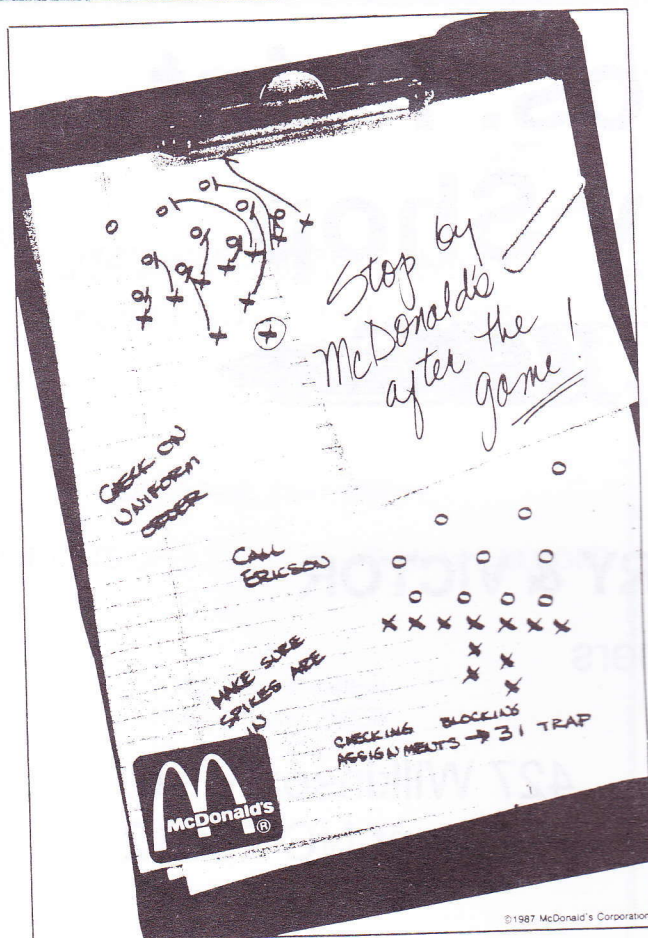 Stop by
McDonald's
after the
game!
CHECK ON
UNIFORM
ORDER
CALL
ERICKSON
MAKE SURE
SPIKES ARE
IN
CHECKING BLOCKING
ASSIGNMENTS → 31 TRAP
McDonald's
®
©1987 McDonald's Corporation